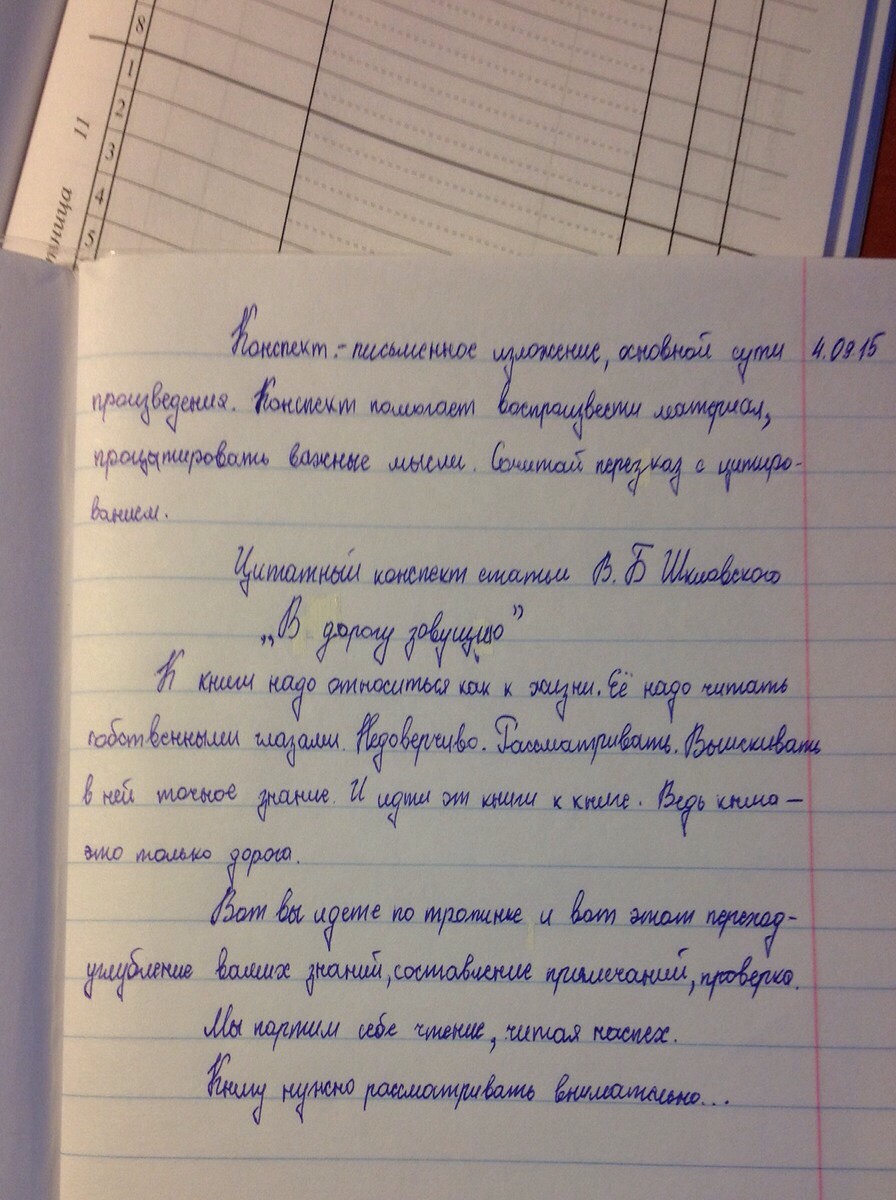 8
1
2
3
4
5
тница 11
Конспект.- письменное изложение, основной сути 4.09.15
произведения. Конспект помогает воспроизвести материал,
процитировать важные мысли. Сочитай пересказ с цитиро-
ванием.
Цитатный конспект статьи В.Б Шкловского
„В дорогу зовущую”
К книги надо относиться как к жизни. Её надо читать
собственными глазами. Недоверчиво. Рассматривать. Выискивать
в ней точное знание. И идти от книги к книге. Ведь книга —
это только дорога.
Вот вы идете по тропинке и вот этот переход-
углубление ваших знаний, составление примечаний, проверка.
Мы портим себе чтение, читая наспех.
Книгу нужно рассматривать внимательно...